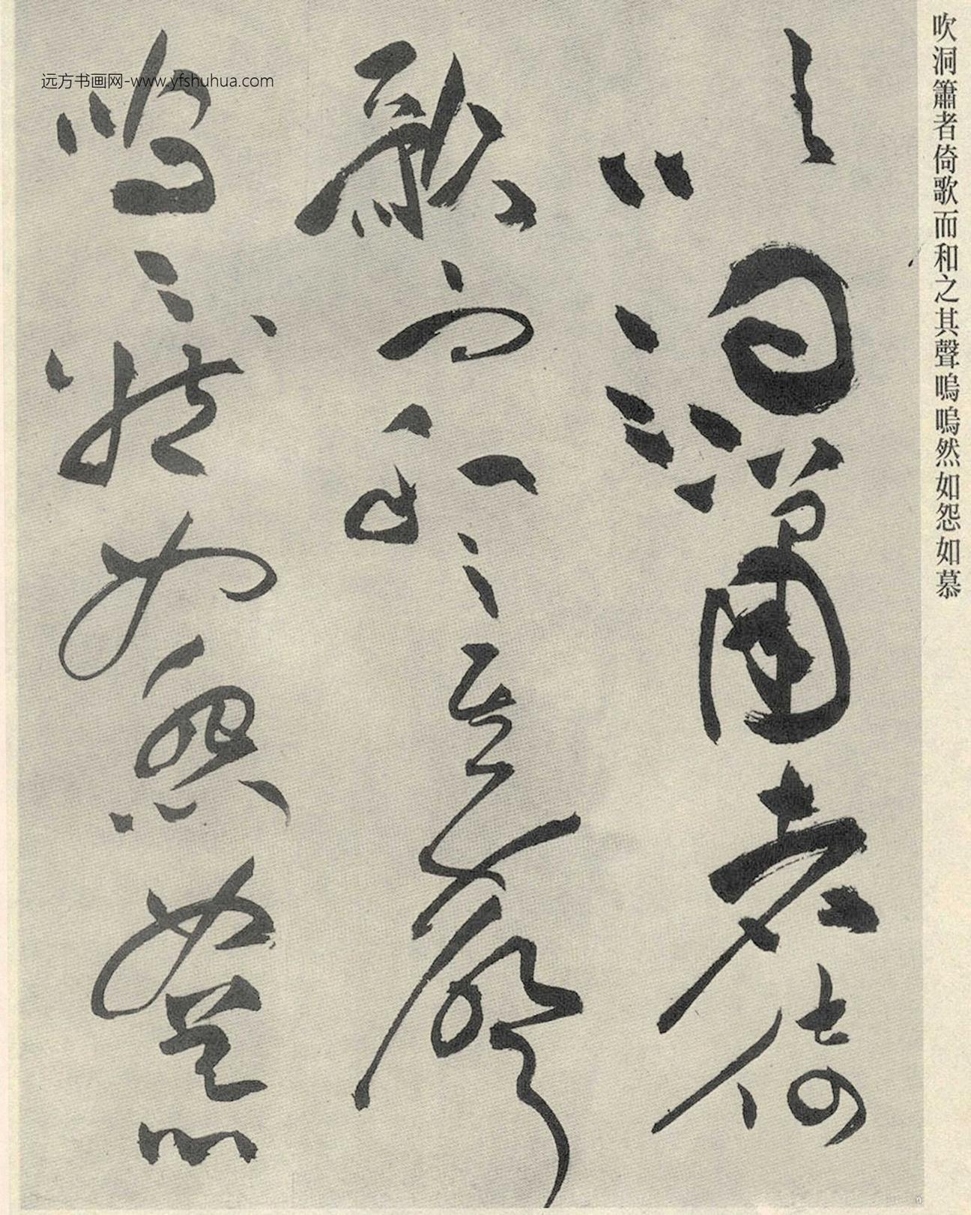 吹洞簫者倚歌而和之其聲嗚嗚然如怨如慕
吹洞簫者倚
歌而和之其聲
嗚〻然如怨如慕
远方书画网-www.yfshuhua.com